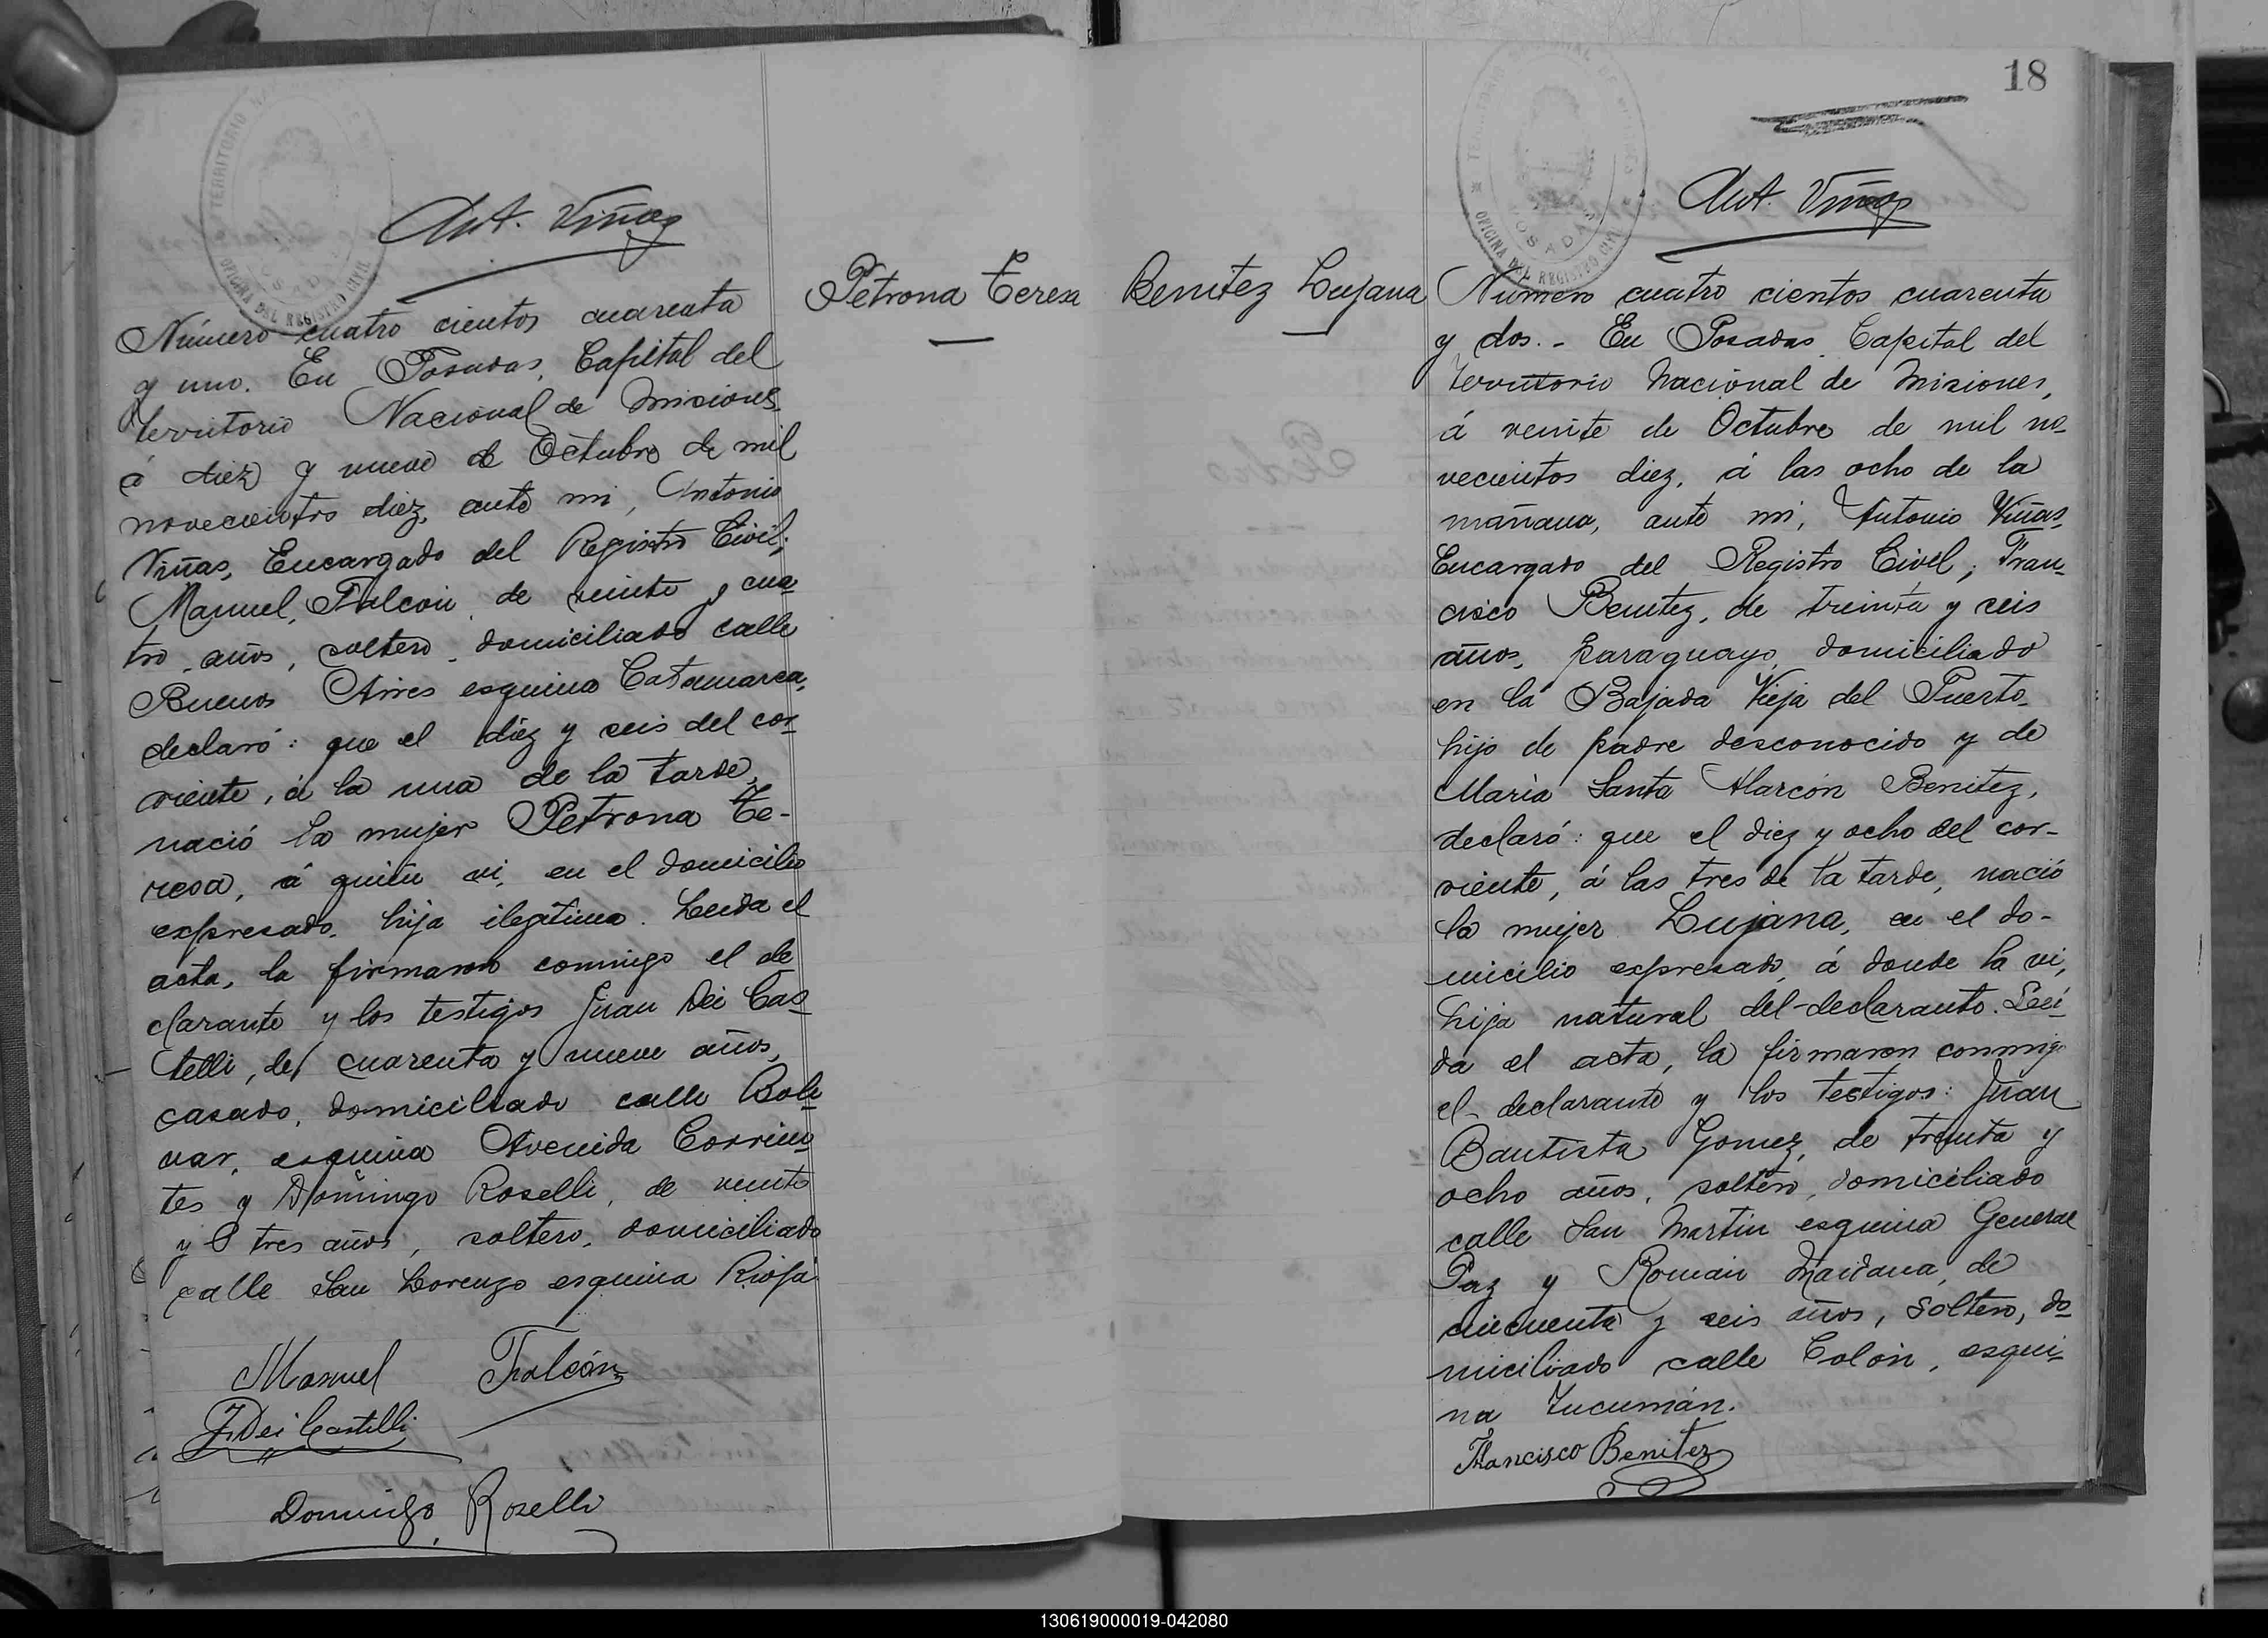 TERRITORIO
OFICINA DEL REGISTRO CIVIL
Ant. Viñas
Número cuatro cientos cuarenta
y uno. En Posadas, Capital del
Territorio Nacional de Misiones
á diez y nueve de Octubre de mil
novecientos diez, ante mi, Antonio
Viñas, Encargado del Registro Civil;
Manuel Falcón, de veinte y cua-
tro años, soltero, domiciliado calle
Buenos Aires esquina Catamarca,
declaró: que el diez y seis del cor-
riente, á la una de la tarde,
nació la mujer Petrona Te-
resa, á quién vi, en el domicilio
expresado, hija ilegítima. Leida el
acta, la firmaron conmigo el de
clarante y los testigos Juan Dei Cas-
telli, de cuarenta y nueve años,
casado, domiciliado calle Boli-
var, esquina Avenida Corrien-
tes y Domingo Roselli, de veinte
y tres años, soltero, domiciliado
calle San Lorenzo esquina Rioja
Manuel Falcón
J. Dei Castelli
Domingo Roselli
Petrona Teresa
Benitez Lujana
18
OFICINA DEL REGISTRO CIVIL
POSADAS
Ant. Viñas
Número cuatro cientos cuarenta
y dos. - En Posadas, Capital del
Territorio Nacional de Misiones,
á veinte de Octubre de mil no-
vecientos diez, á las ocho de la
mañana, ante mi, Antonio Viñas,
Encargado del Registro Civil; Fran-
cisco Benitez, de treinta y seis
años, paraguayo, domiciliado
en la Bajada Vieja del Puerto,
hijo de padre desconocido y de
María Santa Alarcón Benitez,
declaró: que el diez y ocho del cor-
riente, á las tres de la tarde, nació
la mujer Lujana, en el do-
micilio expresado, á donde la vi,
hija natural del declarante. Leí-
da el acta, la firmaron conmigo
el declarante y los testigos: Juan
Bautista Gomez, de treinta y
ocho años, soltero, domiciliado
calle San Martin esquina General
Paz y Román de
cincuenta y seis años, soltero, do-
miciliado calle Colón, esqui-
na Tucumán.
Francisco Benitez
130619000019-042080